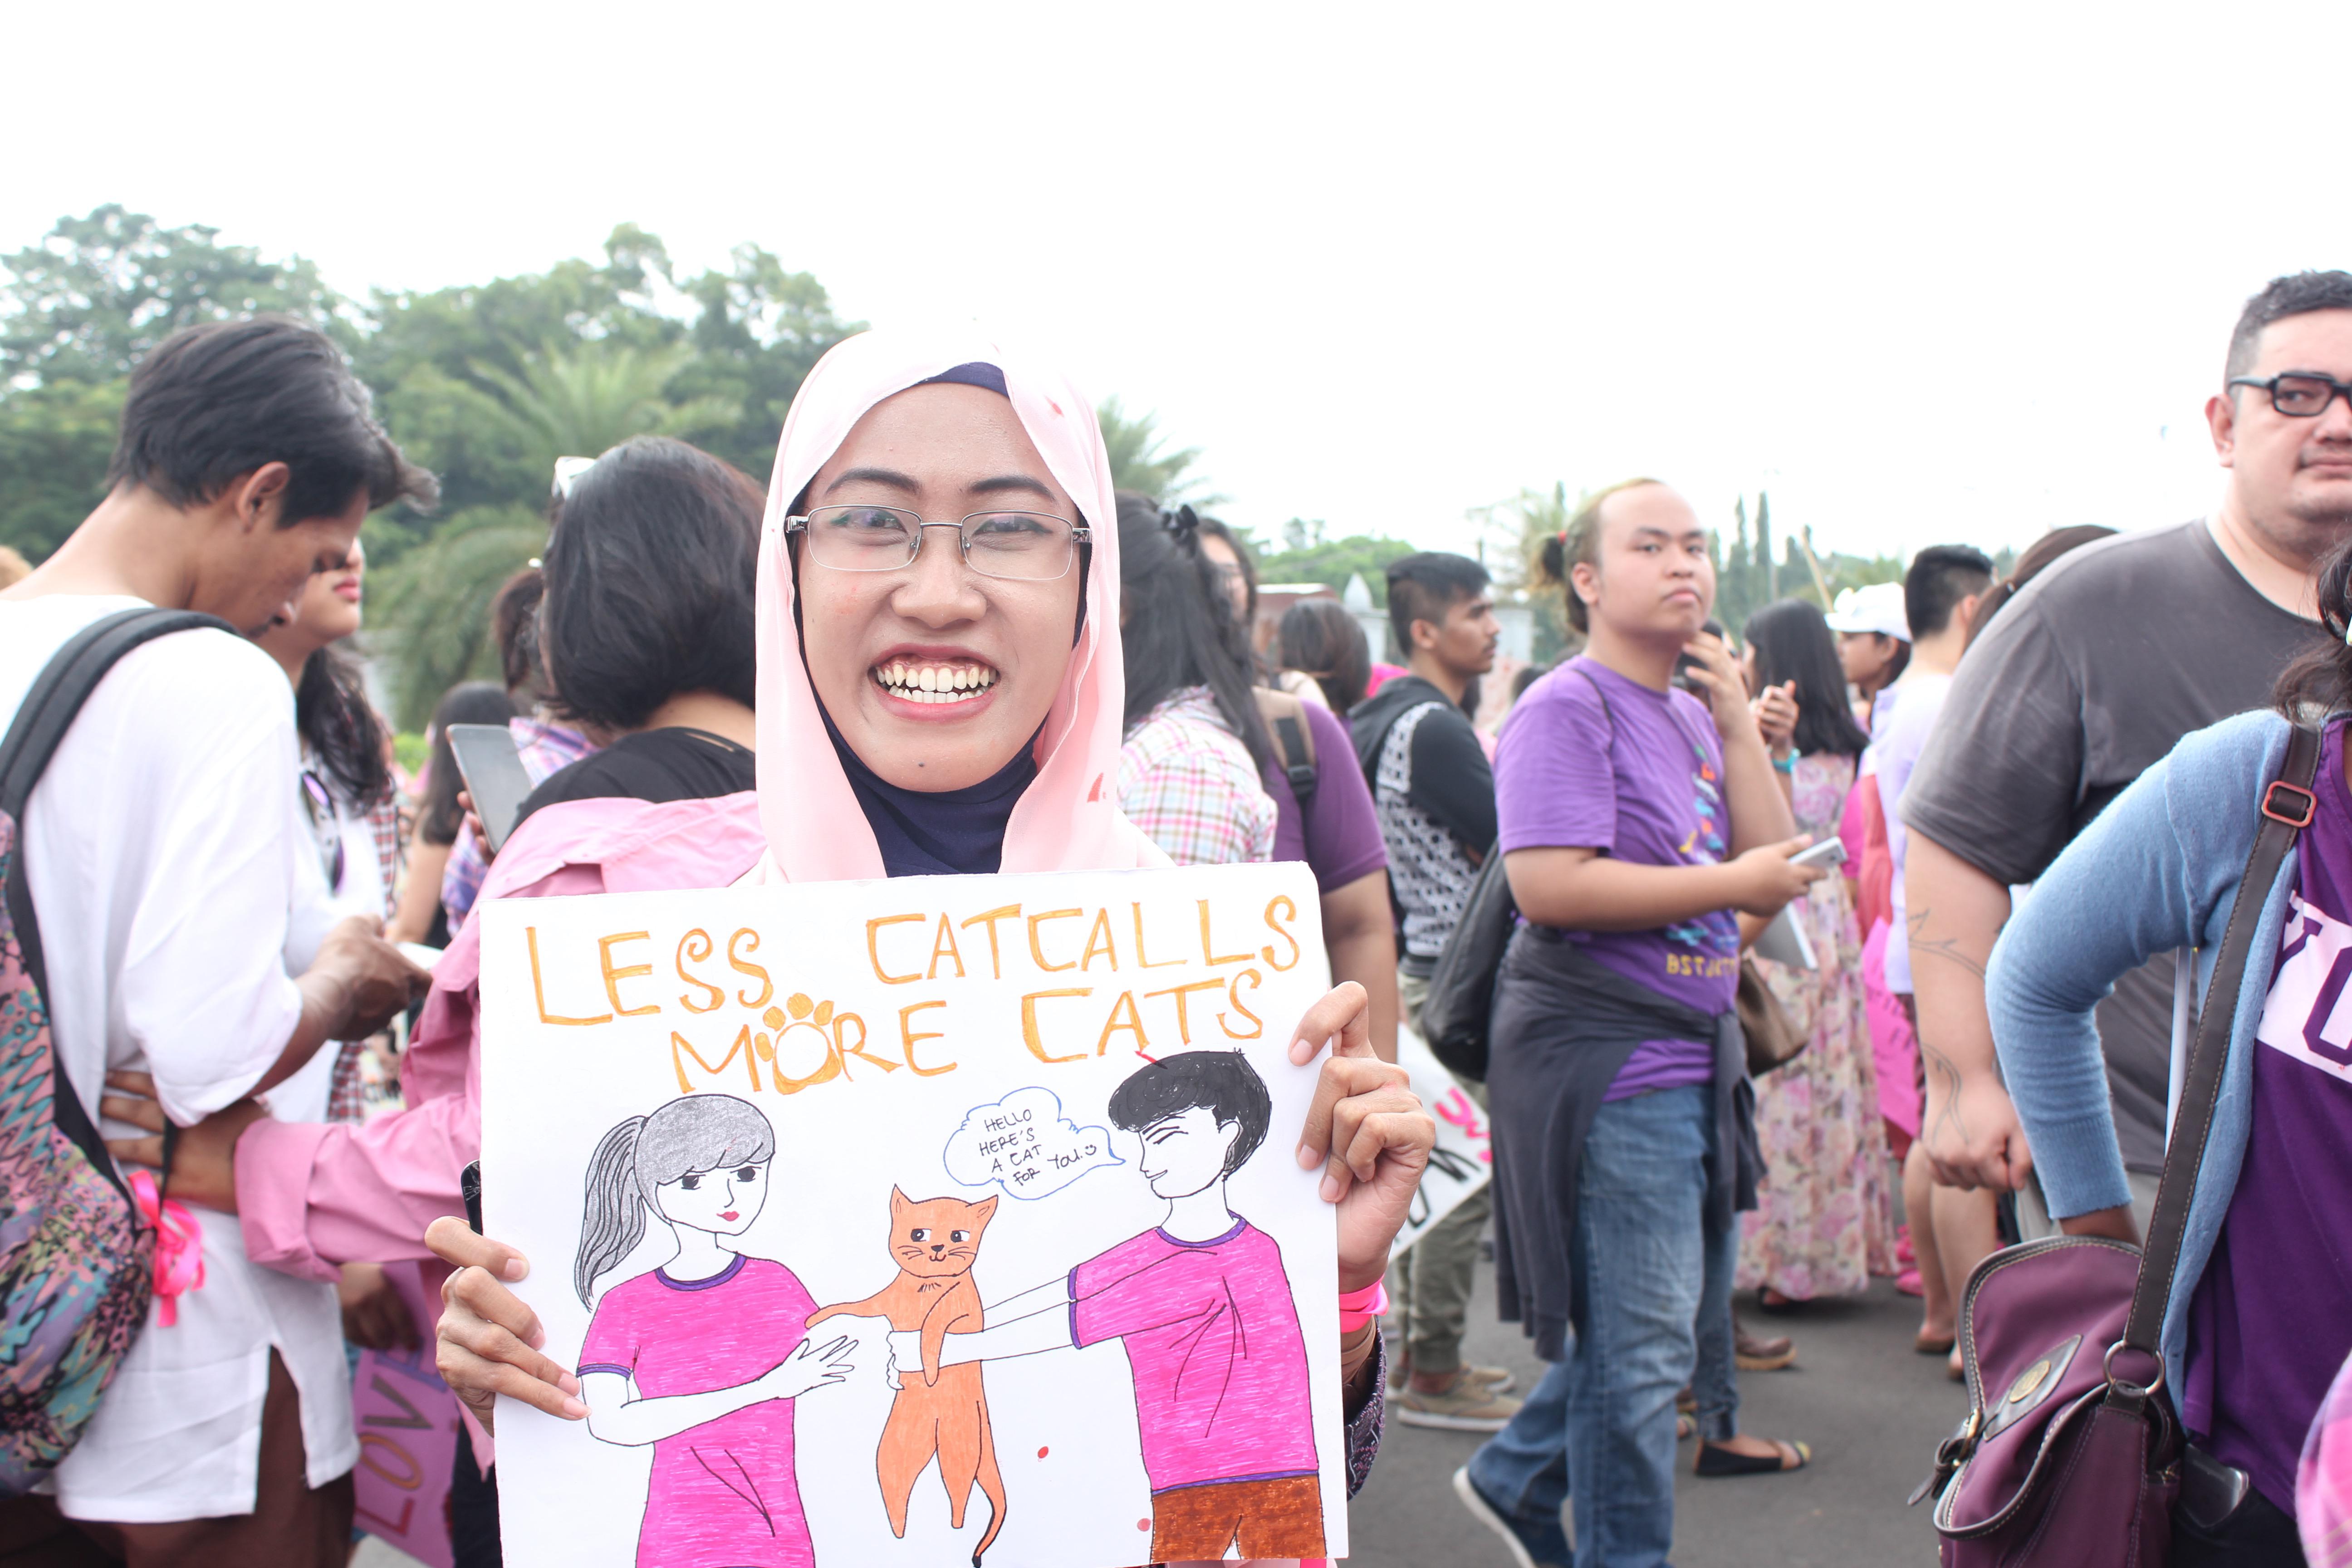 LESS CATCALLS
MORE CATS
HELLO
HERE'S
A CAT
FOR YOU. :)
LOVE